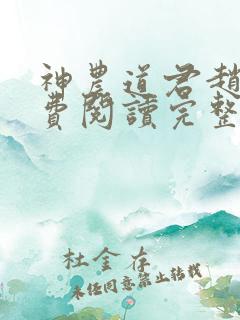 神農道君趙
費閱讀完整
杜金存
未經同意禁止轉載